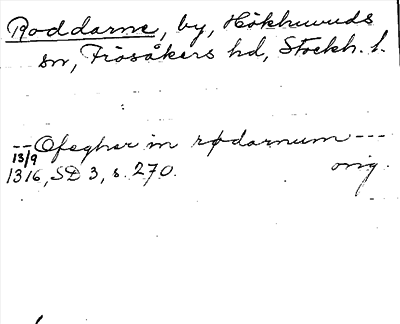 Roddarne, by, Hökhuvuds
sn, Frösåkers hd, Stockh. l.
-- Ofeghar in rødarnum ---
13/9
1316, SD 3, s. 270. orig.